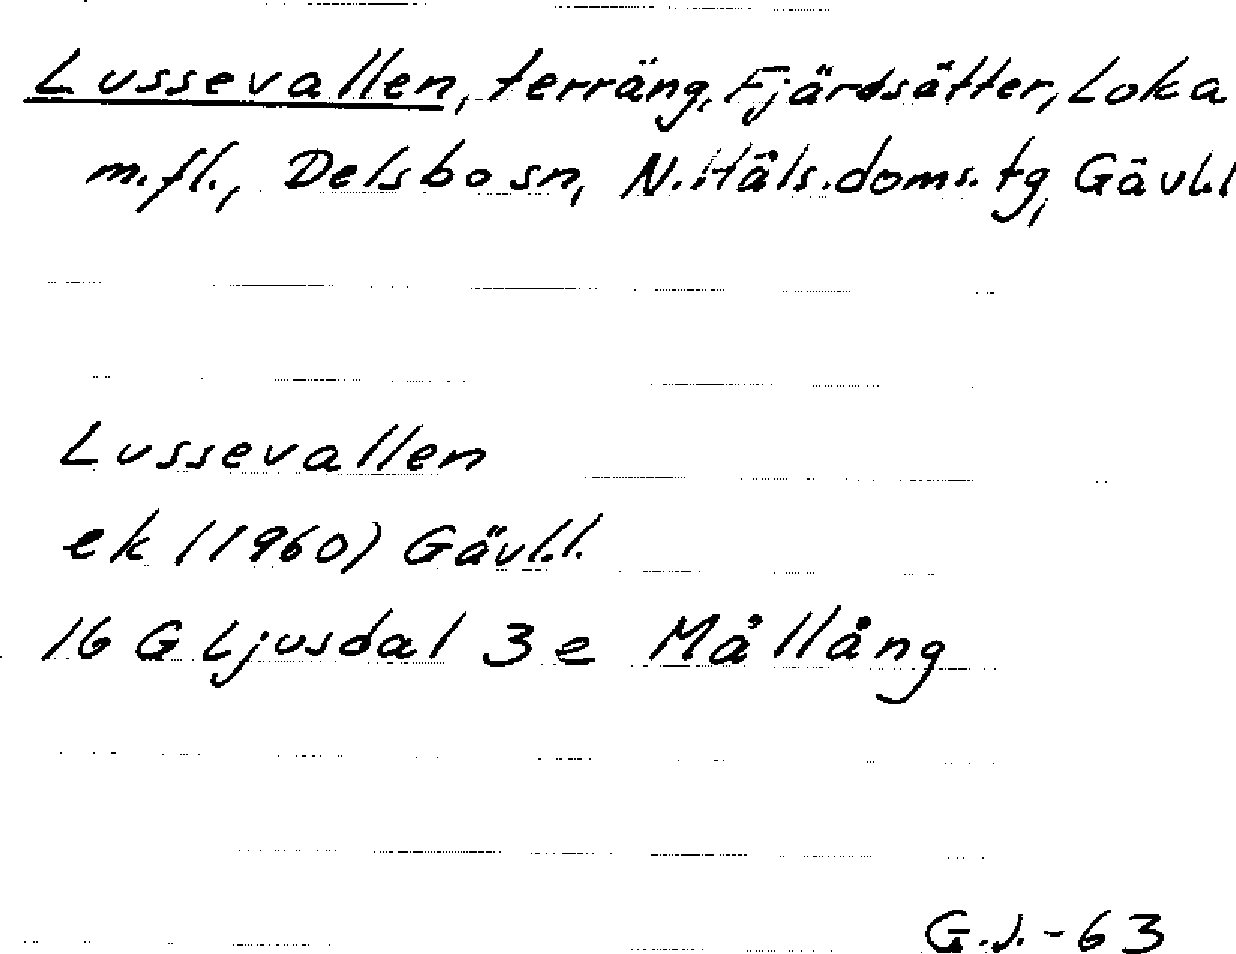 Lussevallen, terräng, Fjärdsätter, Loka
m.fl., Delsbo sn, N.Häls.doms.tg, Gävl.l
Lussevallen
ek (1960) Gävl.l.
16 G Ljusdal 3 e Mållång
G.J.-63